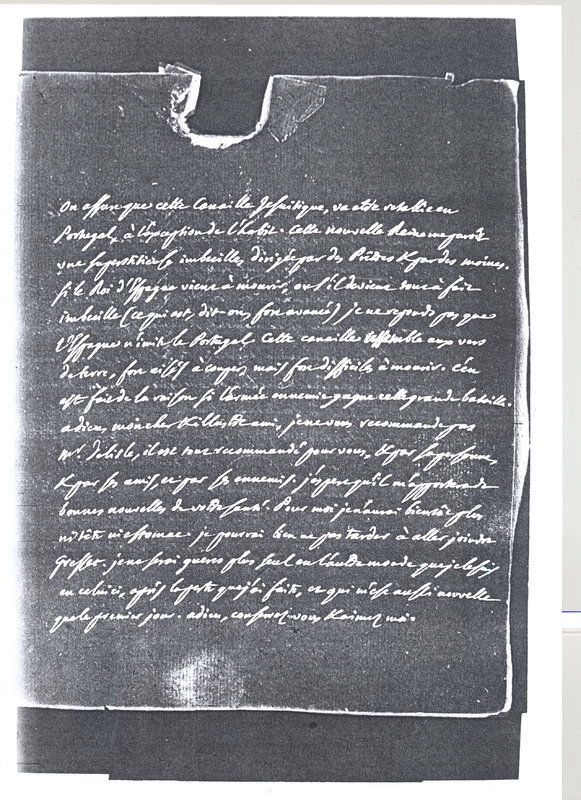 On assure que cette Canaille Jesuitique, va etre retablie en
Portugal, à l'exception de l'habit. Cette nouvelle Reine me paroit
une superstitieuse imbecille, dirigée par des Prêtres & par des moines.
si le Roi d'Espagne vient à mourir, ou s'il devient tout à fait
imbecille (ce qui est, dit-on, fort avancé) je ne reponds pas que
l'Espagne n'imite le Portugal. Cette canaille ressemble aux vers
de terre, fort aisés à couper, mais fort difficiles à mourir. C'en
est fait de la raison si l'armée ennemie gagne cette grande bataille.
adieu, mon cher & illustre ami, je ne vous recommande pas
Mr. Delisle, il est tout recommandé pour vous, & par sa personne,
& par ses amis, et par ses ennemis. j'espere qu'il m'apportera de
bonnes nouvelles de votre santé. Pour moi je n'aurai bientôt plus
ni tête ni estomac. je pourrai bien ne pas tarder à aller joindre
Gresset. je ne serai guere plus seul en l'autre monde que je le suis
en celui ci, après la perte que j'ai faite, et qui m'est aussi nouvelle
que le premier jour. adieu, conservez-vous & aimez moi.